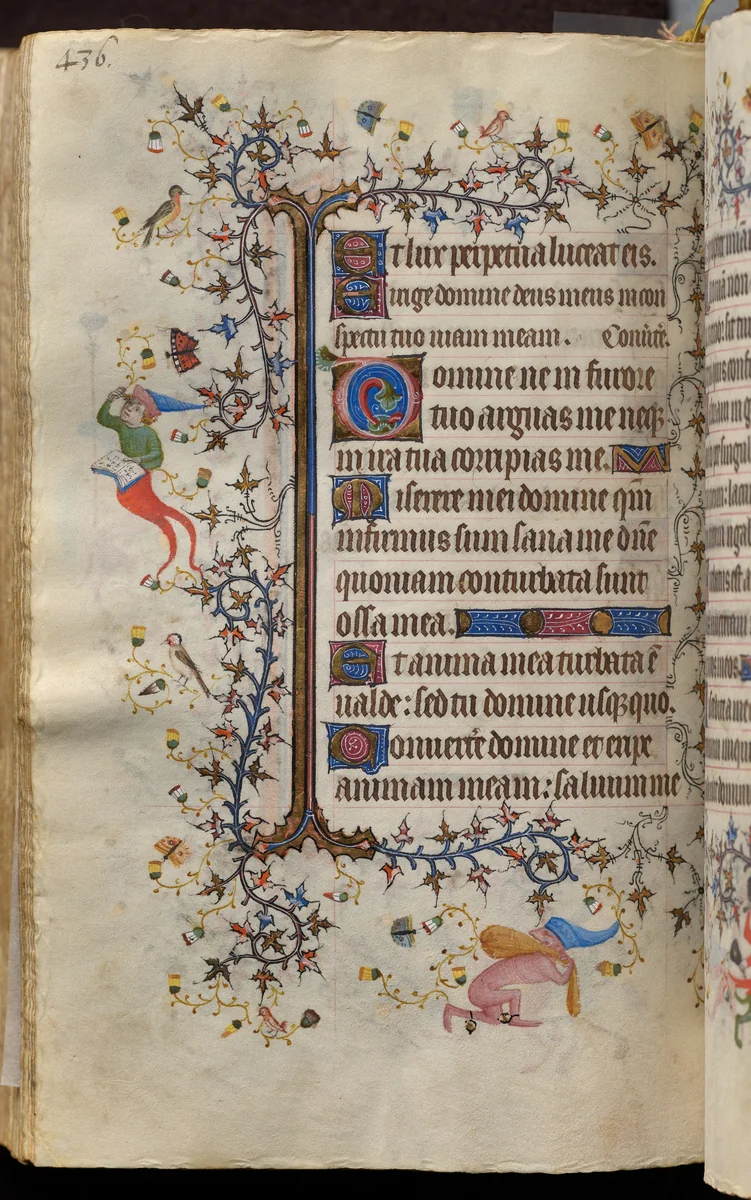 436.
Et lux perpetua luceat eis.
Dirige domine deus meus in con
spectu tuo uiam meam. Conuĩte.
Domine ne in furore
tuo arguas me neqꝫ
in ira tua corripias me.
Miserere mei domine qm̃
infirmus sum sana me dñe
quoniam conturbata sunt
ossa mea.
Et anima mea turbata ẽ
ualde: sed tu domine usqꝫ quo.
Conuertẽ domine et eripe
animam meam: saluum me